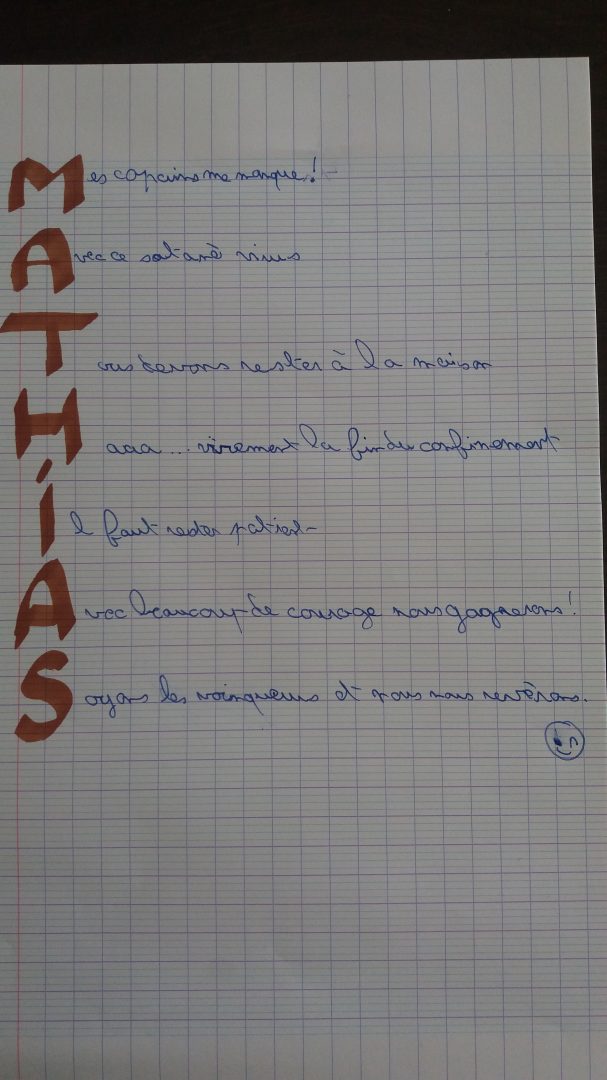 Mes copains me manque!
Avec ce satané virus
Tous devons rester à la maison
Haaa... vivement la fin du confinement
Il faut rester patient
Avec beaucoup de courage nous gagnerons!
Soyons les vainqueurs et nous nous reverrons.